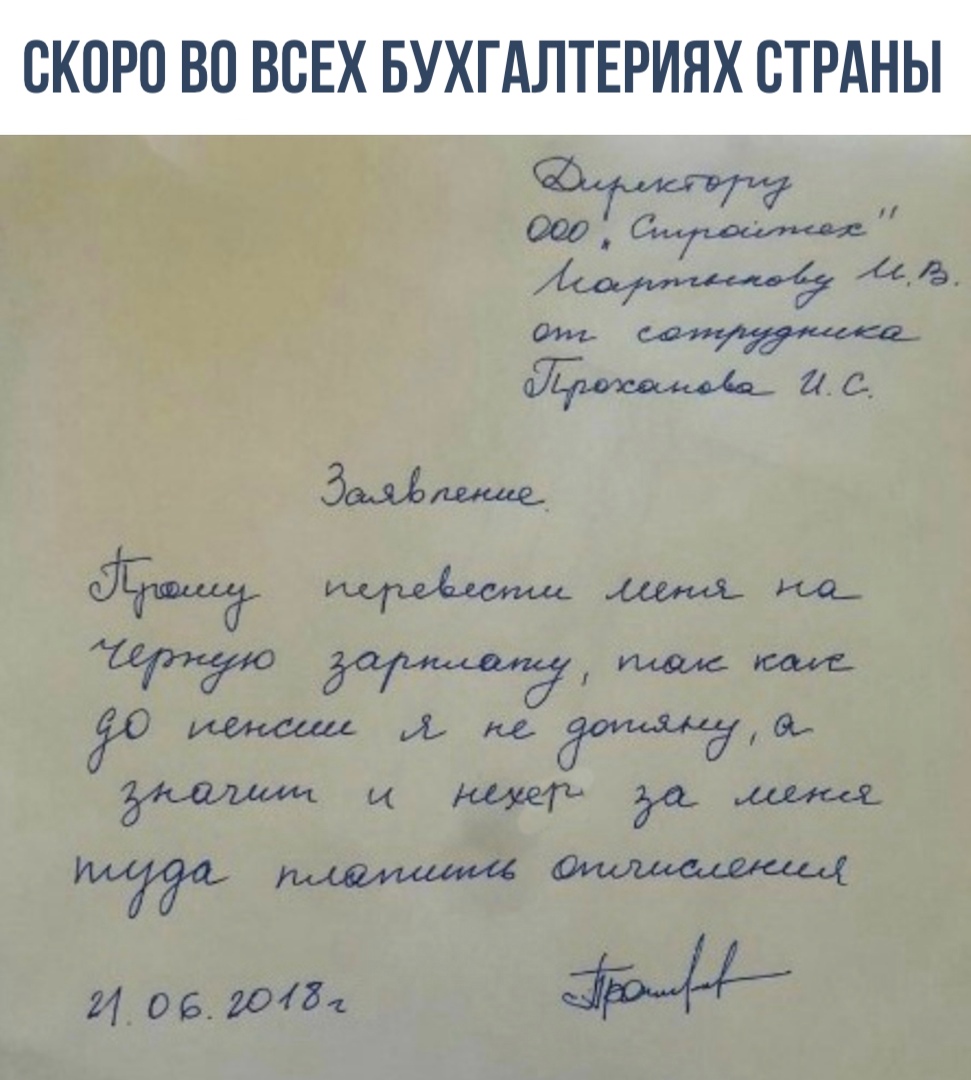 СКОРО ВО ВСЕХ БУХГАЛТЕРИЯХ СТРАНЫ
Директору
ООО „Стройтех"
Мартынову И.В.
от сотрудника
Проханова И.С.
Заявление.
Прошу перевести меня на
черную зарплату, так как
до пенсии я не дотяну, а
значит и нехер за меня
туда платить отчисления
21.06.2018г